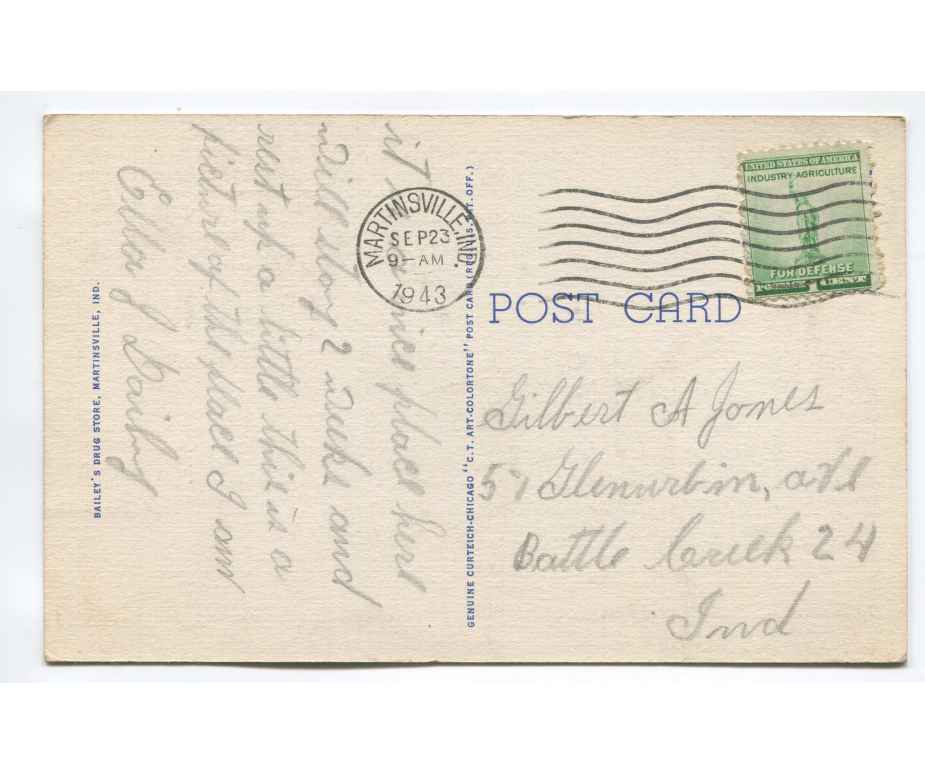 UNITED STATES OF AMERICA
INDUSTRY·AGRICULTURE
FOR DEFENSE
POSTAGE 1 CENT
MARTINSVILLE, IND.
SEP 23
9–AM
1943
POST CARD
it nice place here
will stay 2 weeks and
rest up a little this is a
picture of the place I am
Gilbert A Jones
51 Ave
Battle Creek 24
Ind
BAILEY'S DRUG STORE, MARTINSVILLE, IND.
GENUINE CURTEICH-CHICAGO "C.T. ART-COLORTONE" POST CARD (REG. U.S. PAT. OFF.)